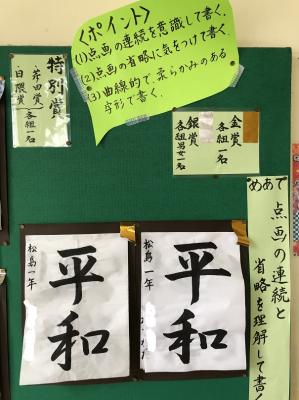 <ポイント>
(1)点画の連続を意識して書く。
(2)点画の省略に気をつけて書く。
(3)曲線的で、柔らかみのある
字形で書く。
特別賞
各組一名
日隈賞
金賞
各組一名
銀賞
各組男女一名
めあて
点画の連続と
省略を理解して書く
平和
松島一年
平和
松島一年